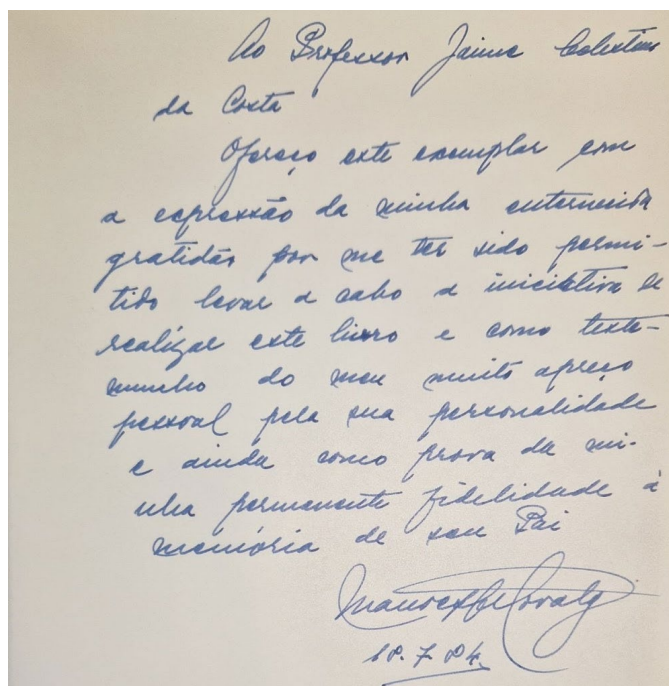 Ao Professor Jaime Celestino
da Costa
Ofereço este exemplar com
a expressão da minha enternecida
gratidão por me ter sido permi-
tido levar a cabo a iniciativa de
realizar este livro e como teste-
munho do meu muito apreço
pessoal pela sua personalidade
e ainda como prova da mi-
nha permanente fidelidade à
memória de seu Pai
18.7.84.